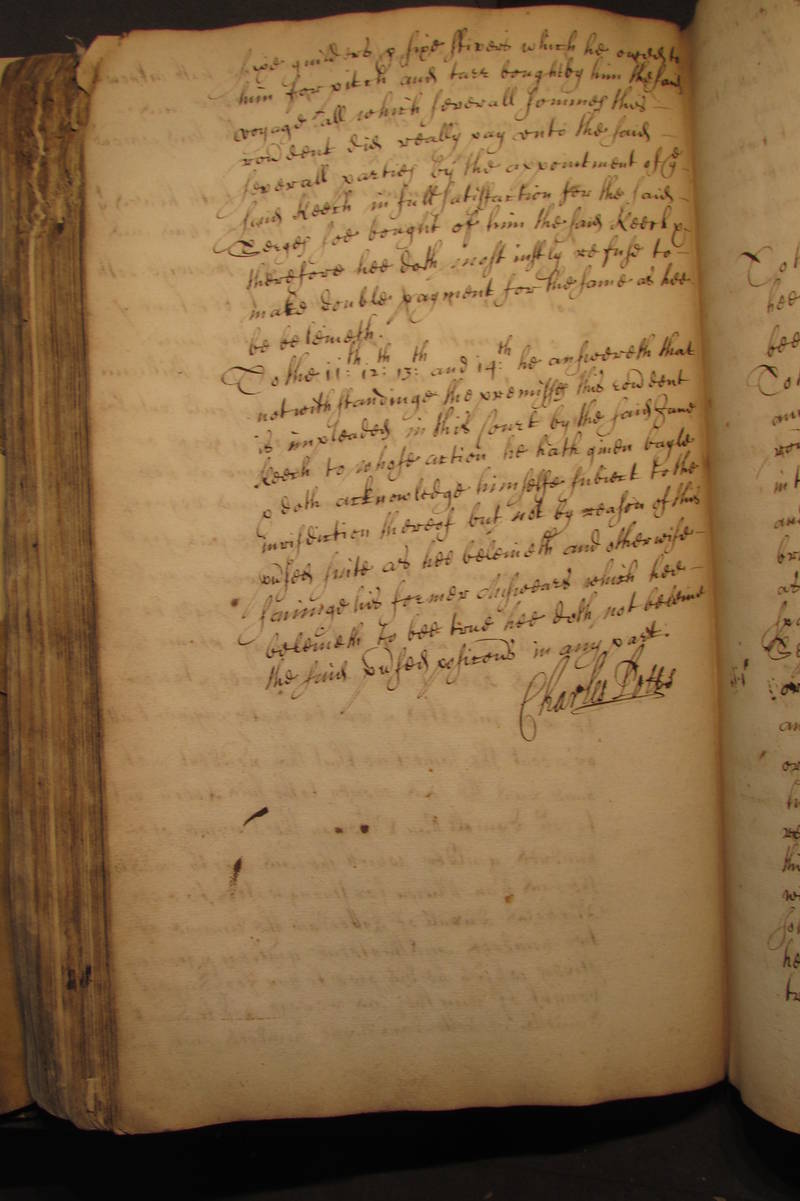 sixe guilders & sixe stivers which he owed to
him for pitch and tarr bought by him the said
voyage all which severall sommes this
rondent did really pay unto the said
severall parties by the appointment of ye
said Keech in full satisfaction for the said
Serges soe bought of him the said Keech &
therefore hee doth most iustly refuse to
make double payment for the same as hee
be beleiueth.
To the 11th: 12th: 13th: and 14th: he answereth that
notwithstandinge the premisses this rondent
is impleaded in this Court by the said Jane
Keech to whose action he hath giuen bayle
& doth acknowledge himselfe subiect to the
iurisdiction thereof but not by reason of this
prsed suite as hee beleiueth and otherwise
sauinge his former Answeares which hee
beleiueth to bee true hee doth not beleiue
the said prsed positons in any part.
Charles Potts
To
hee
bee
To
in t
br
as
an
or
thi
he